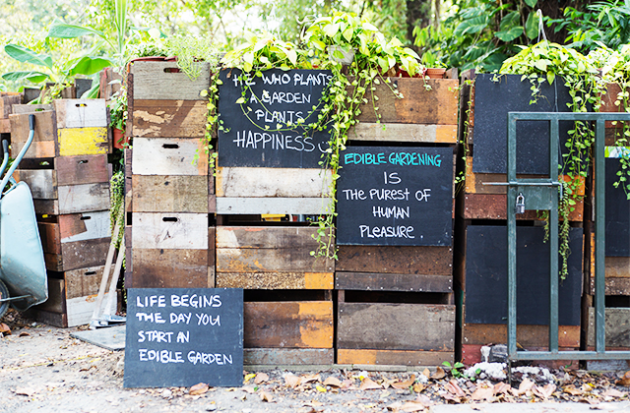 He who plants
a garden
plants
happiness
EDIBLE GARDENING
IS
THE PUREST OF
HUMAN
PLEASURE.
LIFE BEGINS
THE DAY YOU
START AN
EDIBLE GARDEN